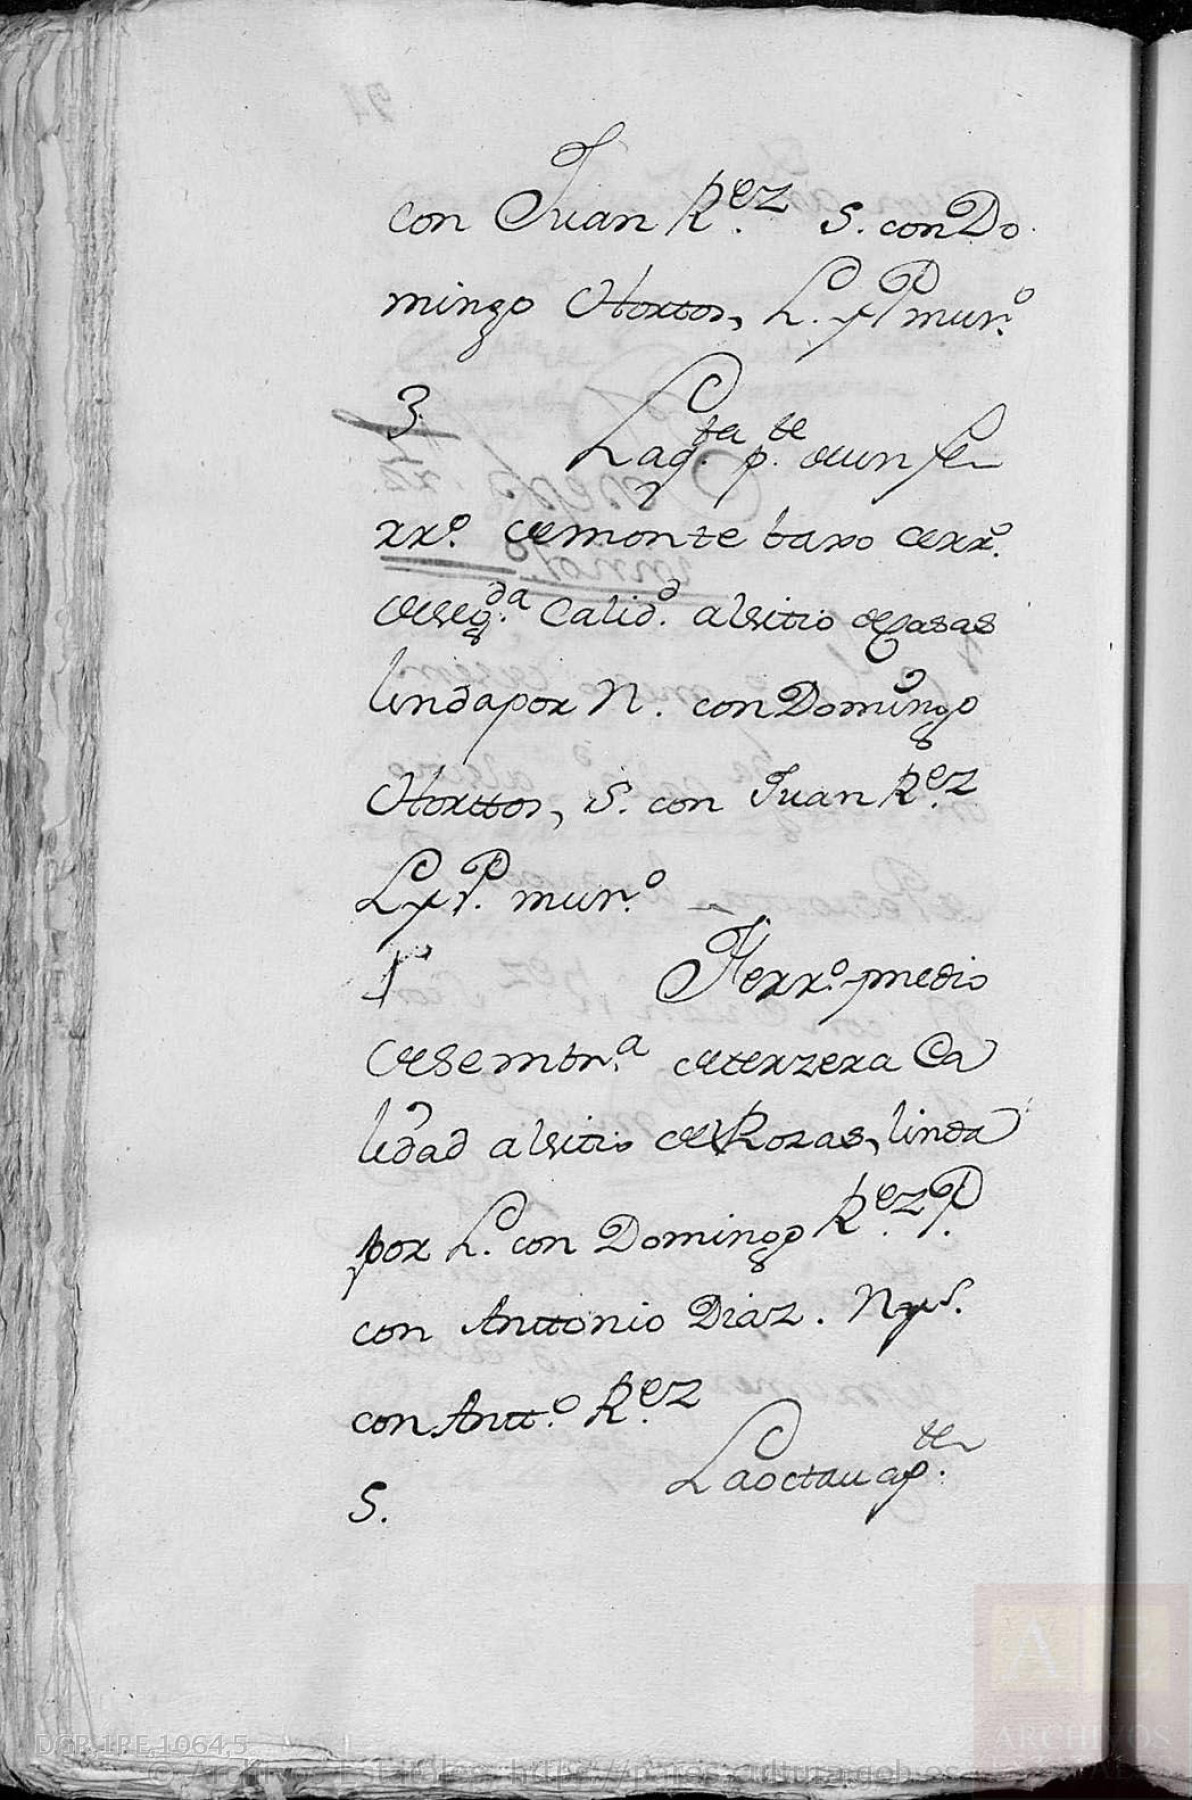 con Juan R.ez S. con Do
mingo Hortos, L. y P mur.o
3 La q.ta p.te de un fe
rr.o de monte baxo cerr.o
de seg.da Calid.d al sitio de Casas
linda por N. con Domingo
Horttos, S. con Juan R.ez
L y P. mur.o
1 Ferr.o medio
de sembr.a de terzera Ca
lidad al sitio de Rozas, linda
por L. con Domingo R.ez P.
con Anttonio Diaz. N y S.
con Antt.o R.ez
S. La octau a p.te
DGR,1RE,1064,5
© Archivos Estatales, https://pares.cultura.gob.es
A E
ARCHIVOS